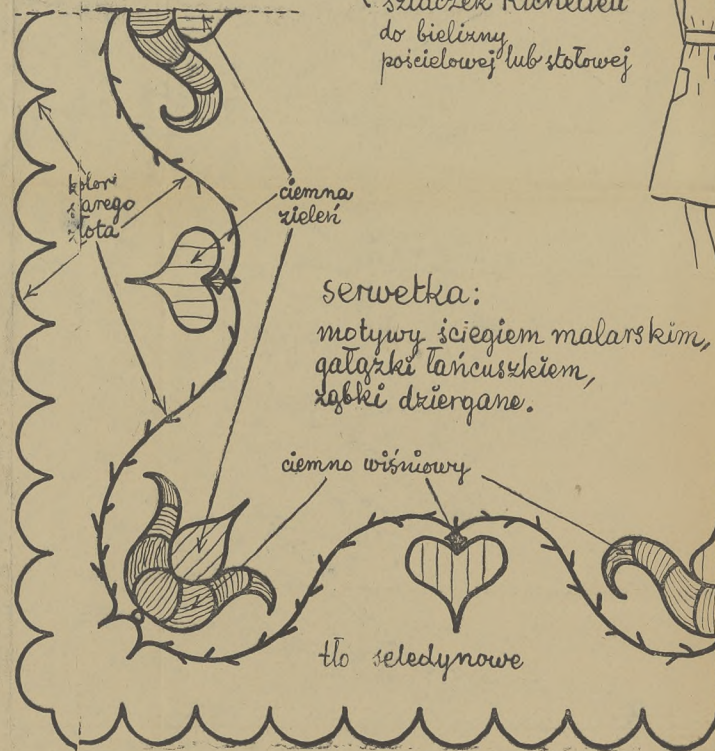 szlaczek Richelieu
do bielizny
pościelowej lub stołowej
kolor
starego
złota
ciemna
zieleń
serwetka:
motywy ściegiem malarskim,
gałązki łańcuszkiem,
ząbki dziergane.
ciemno wiśniowy
tło seledynowe